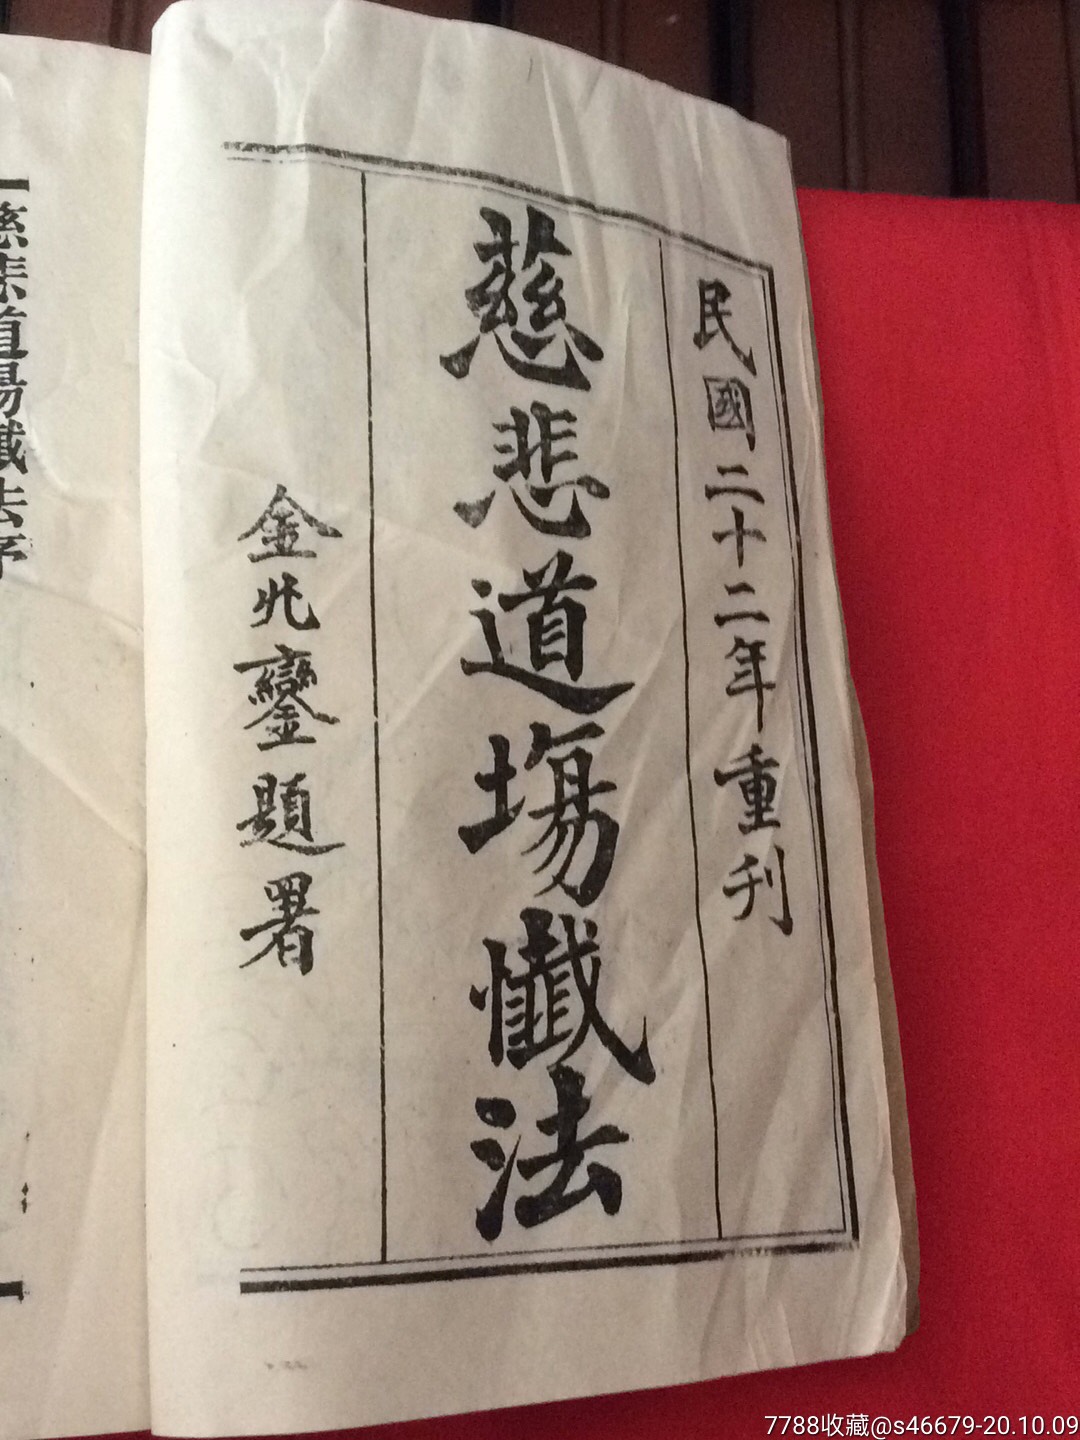 民國二十二年重刊
慈悲道場懺法
金兆鑾題署
慈悲道場懺法序
7788收藏@s46679-20.10.09